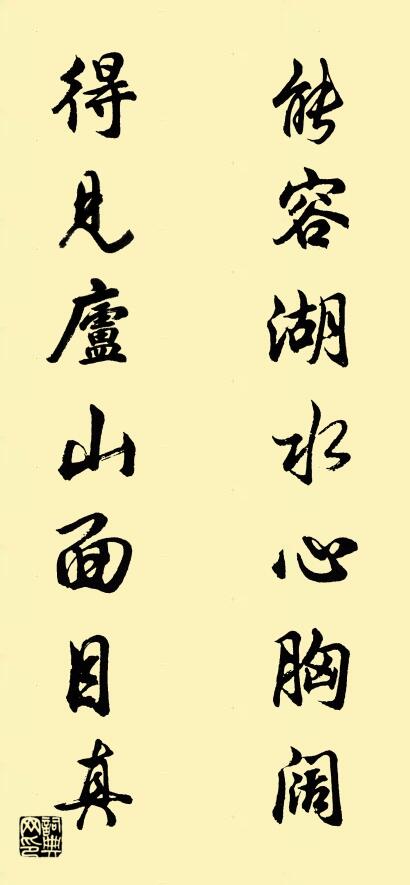 能容湖水心胸阔
得見廬山面目真
詞典网印